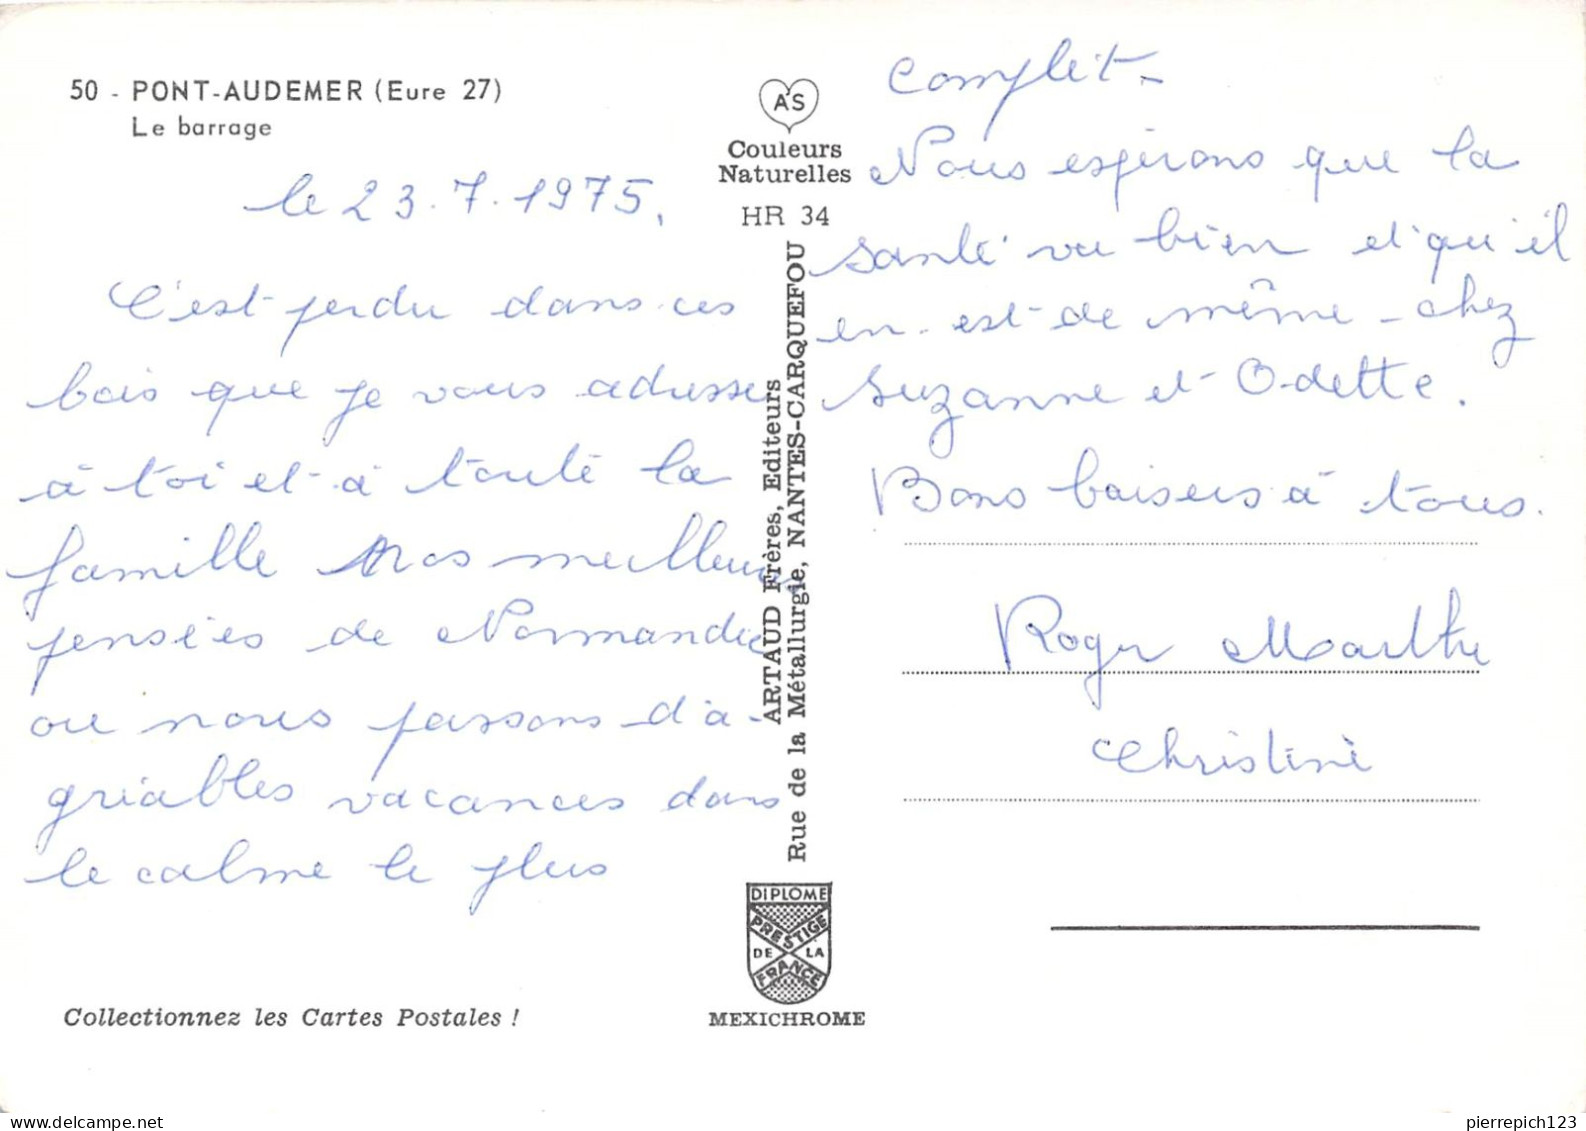 50 - PONT-AUDEMER (Eure 27)
Le barrage
le 23.7.1975.
C'est perdu dans ces
bois que je vous adresse
à toi et à toute la
famille nos meilleures
pensées de Normandie
ou nous passons d'a-
griables vacances dans
le calme le plus
complet.
Nous espérons que la
santé va bien et qu'il
en est de même chez
Suzanne et Odette.
Bons baisers à tous.
Roger Marthe
Christine
A S
Couleurs
Naturelles
HR 34
ARTAUD Frères, Editeurs
Rue de la Métallurgie, NANTES-CARQUEFOU
DIPLOME
PRESTIGE
DE LA
FRANCE
MEXICHROME
Collectionnez les Cartes Postales !
pierrepich123